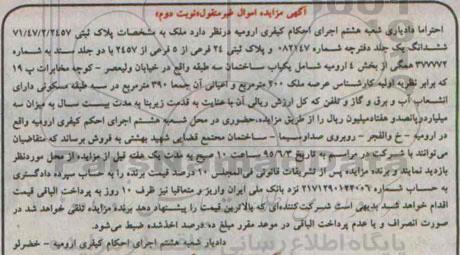 آگهی مزایده اموال غیرمنقول«نوبت دوم»
احتراما دادیاری شعبه هشتم اجرای احکام کیفری ارومیه درنظر دارد ملک به مشخصات پلاک ثبتی ۷۱/۴۷/۲/۲۴۵۷
ششدانگ یک جلد دفترچه شماره ۰۸۲۱۴۷ و پلاک ثبتی ۲۴ فرعی از ۵ فرعی از ۲۴۵۷ با دو جلد سند به شماره
۳۷۷۷۷۲ همگی از بخش ۴ ارومیه شامل یکباب ساختمان سه طبقه واقع در خیابان ولیعصر - کوچه مخابرات پ ۱۹
که برابر نظریه اولیه کارشناس عرصه ملک ۲۰۰ مترمربع و اعیانی آن جمعا ۳۹۰ مترمربع در سه طبقه مسکونی دارای
انشعاب آب و برق و گاز و تلفن که کل ارزش ریالی آن با عنایت به قدمت زیربنا به مدت بیست سال به میزان سه
میلیاردوپانصدو هفتادمیلیون ریال را از طریق مزایده،حضوری در محل شعبه هشتم اجرای احکام کیفری ارومیه واقع
در ارومیه - خ والفجر - روبروی صداوسیما - ساختمان مجتمع قضایی شهید بهشتی به فروش برساند که متقاضیان
می توانند با شرکت در مراسم به تاریخ ۹۵/۷/۳ ساعت ۱۰ صبح به مدت یک هفته قبل از مزایده از محل موردنظر
بازدید نمایند و برنده مزایده پس از تشریفات قانونی فی‌المجلس ۱۰ درصد قیمت برنده را به حساب سپرده دادگستری
به حساب شماره نزد بانک ملی ایران واریز و متعاقبا نیز ظرف ۱۰ روز به پرداخت الباقی قیمت
اقدام خواهد شد بدیهی است شرکت‌کننده‌ای که بالاترین قیمت را پیشنهاد دهد برنده مزایده تلقی خواهد شد در
صورت انصراف و یا عدم پرداخت الباقی در موعد مقرر مبلغ ده درصد اخذشده ضبط می‌شود.
دادیار شعبه هشتم اجرای احکام کیفری ارومیه - خضرلو